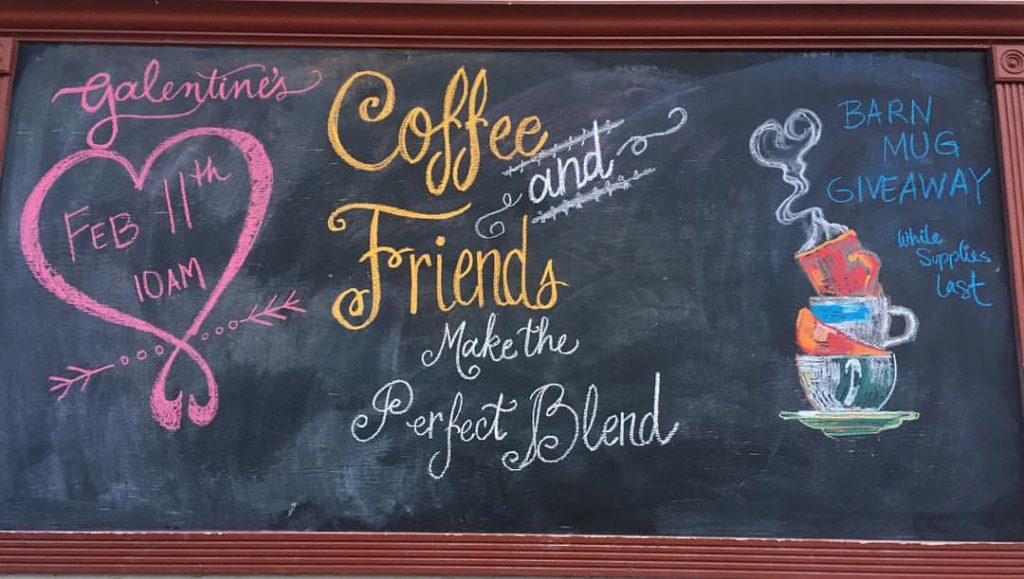 Galentine's
FEB 11th
10AM
Coffee
and
Friends
Make the
Perfect Blend
BARN
MUG
GIVEAWAY
While
Supplies
Last